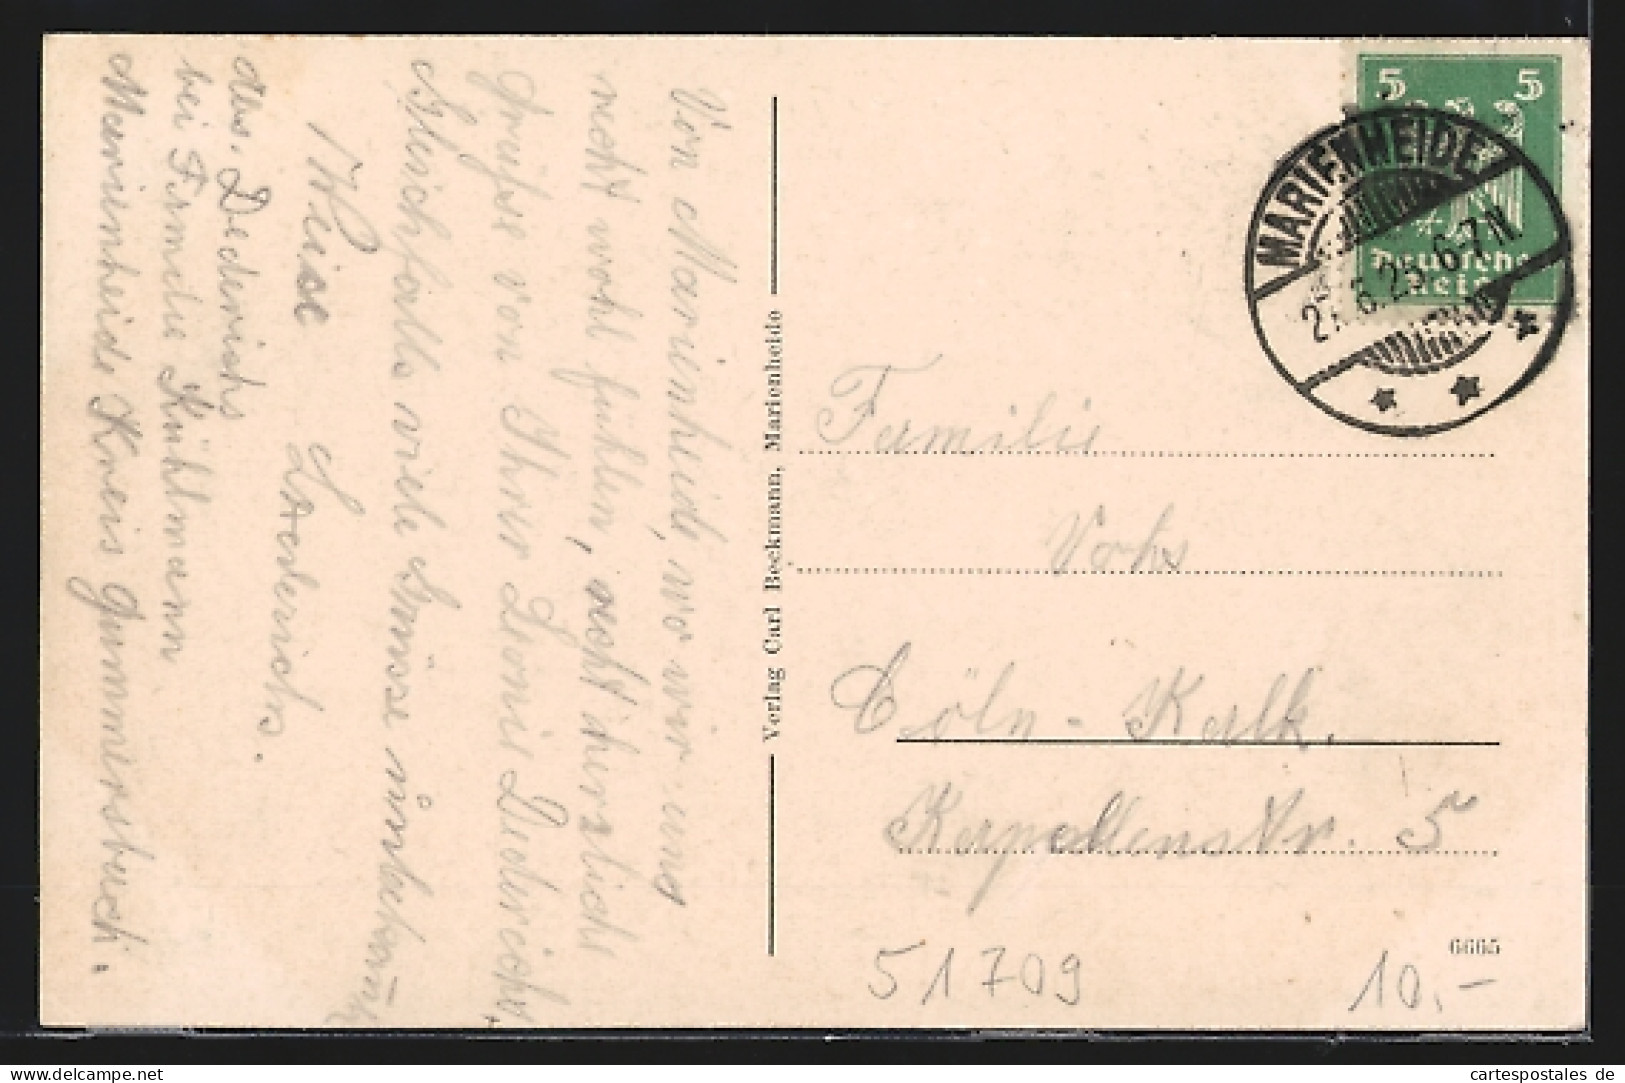 Von Marienheide, wo wir uns
recht wohl fühlen, recht herzliche
Grüsse von Ihrer Leonie Diederichs,
Gleichfalls viele Grüsse
Diederichs.
Adr. Diederichs
bei Familie Kühlmann
Marienheide Kreis Gummersbach.
Verlag Carl Beckmann, Marienheide
5 5
Deutsches
Reich
MARIENHEIDE
6.25.6-7N.
Familie
Vohs
Cöln - Kalk.
Kapellenstr. 5
6665
51709
10.-
www.cartespostales.de
cartespostales de